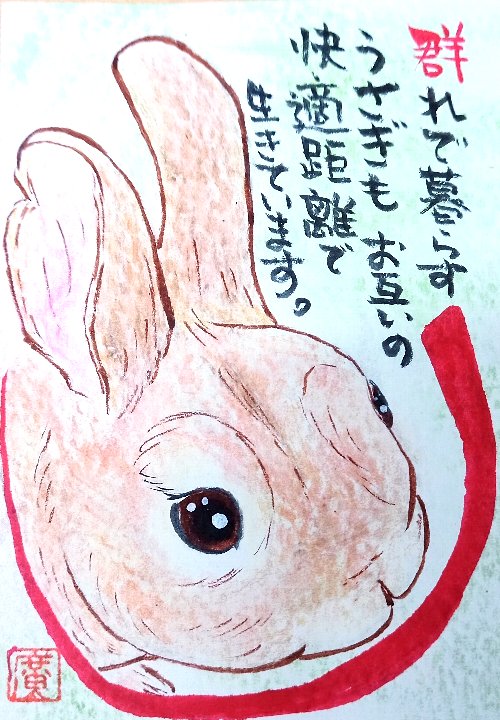 群れで暮らす
うさぎもお互いの
快適距離で
生きています。
廣